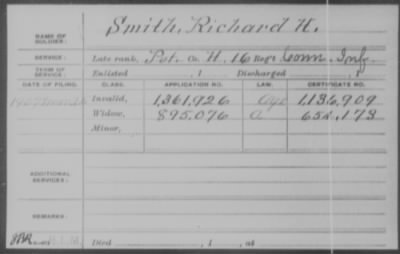 Smith, Richard H.
NAME OF SOLDIER:
SERVICE: Late rank, Pvt. Co. H, 16 Reg't Conn. Inf.
TERM OF SERVICE: Enlisted , 1 Discharged , 1
DATE OF FILING. CLASS. APPLICATION NO. LAW. CERTIFICATE NO.
Invalid, 1,361,926 1,136,909
Widow, 895,076 654,173
Minor,
ADDITIONAL SERVICES:
REMARKS:
Died , 1 , at